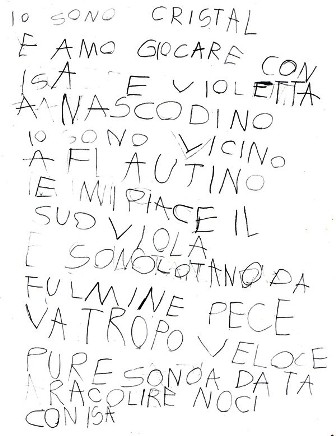 IO SONO CRISTAL
E AMO GIOCARE CON
ISA E VIOLETTA
A NASCODINO
IO SONO VICINO
A FI AUTINO
E MI PIACE IL
SUD VIOLA
E SONO LOTANO DA
FULMINE PECE
VA TROPO VELOCE
PURE SONOA DA TA
A RACOLIRE NOCI
CON ISA